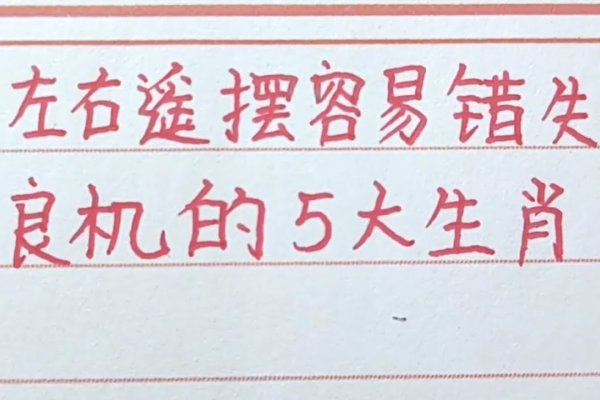 左右遥摆容易错失
良机的5大生肖